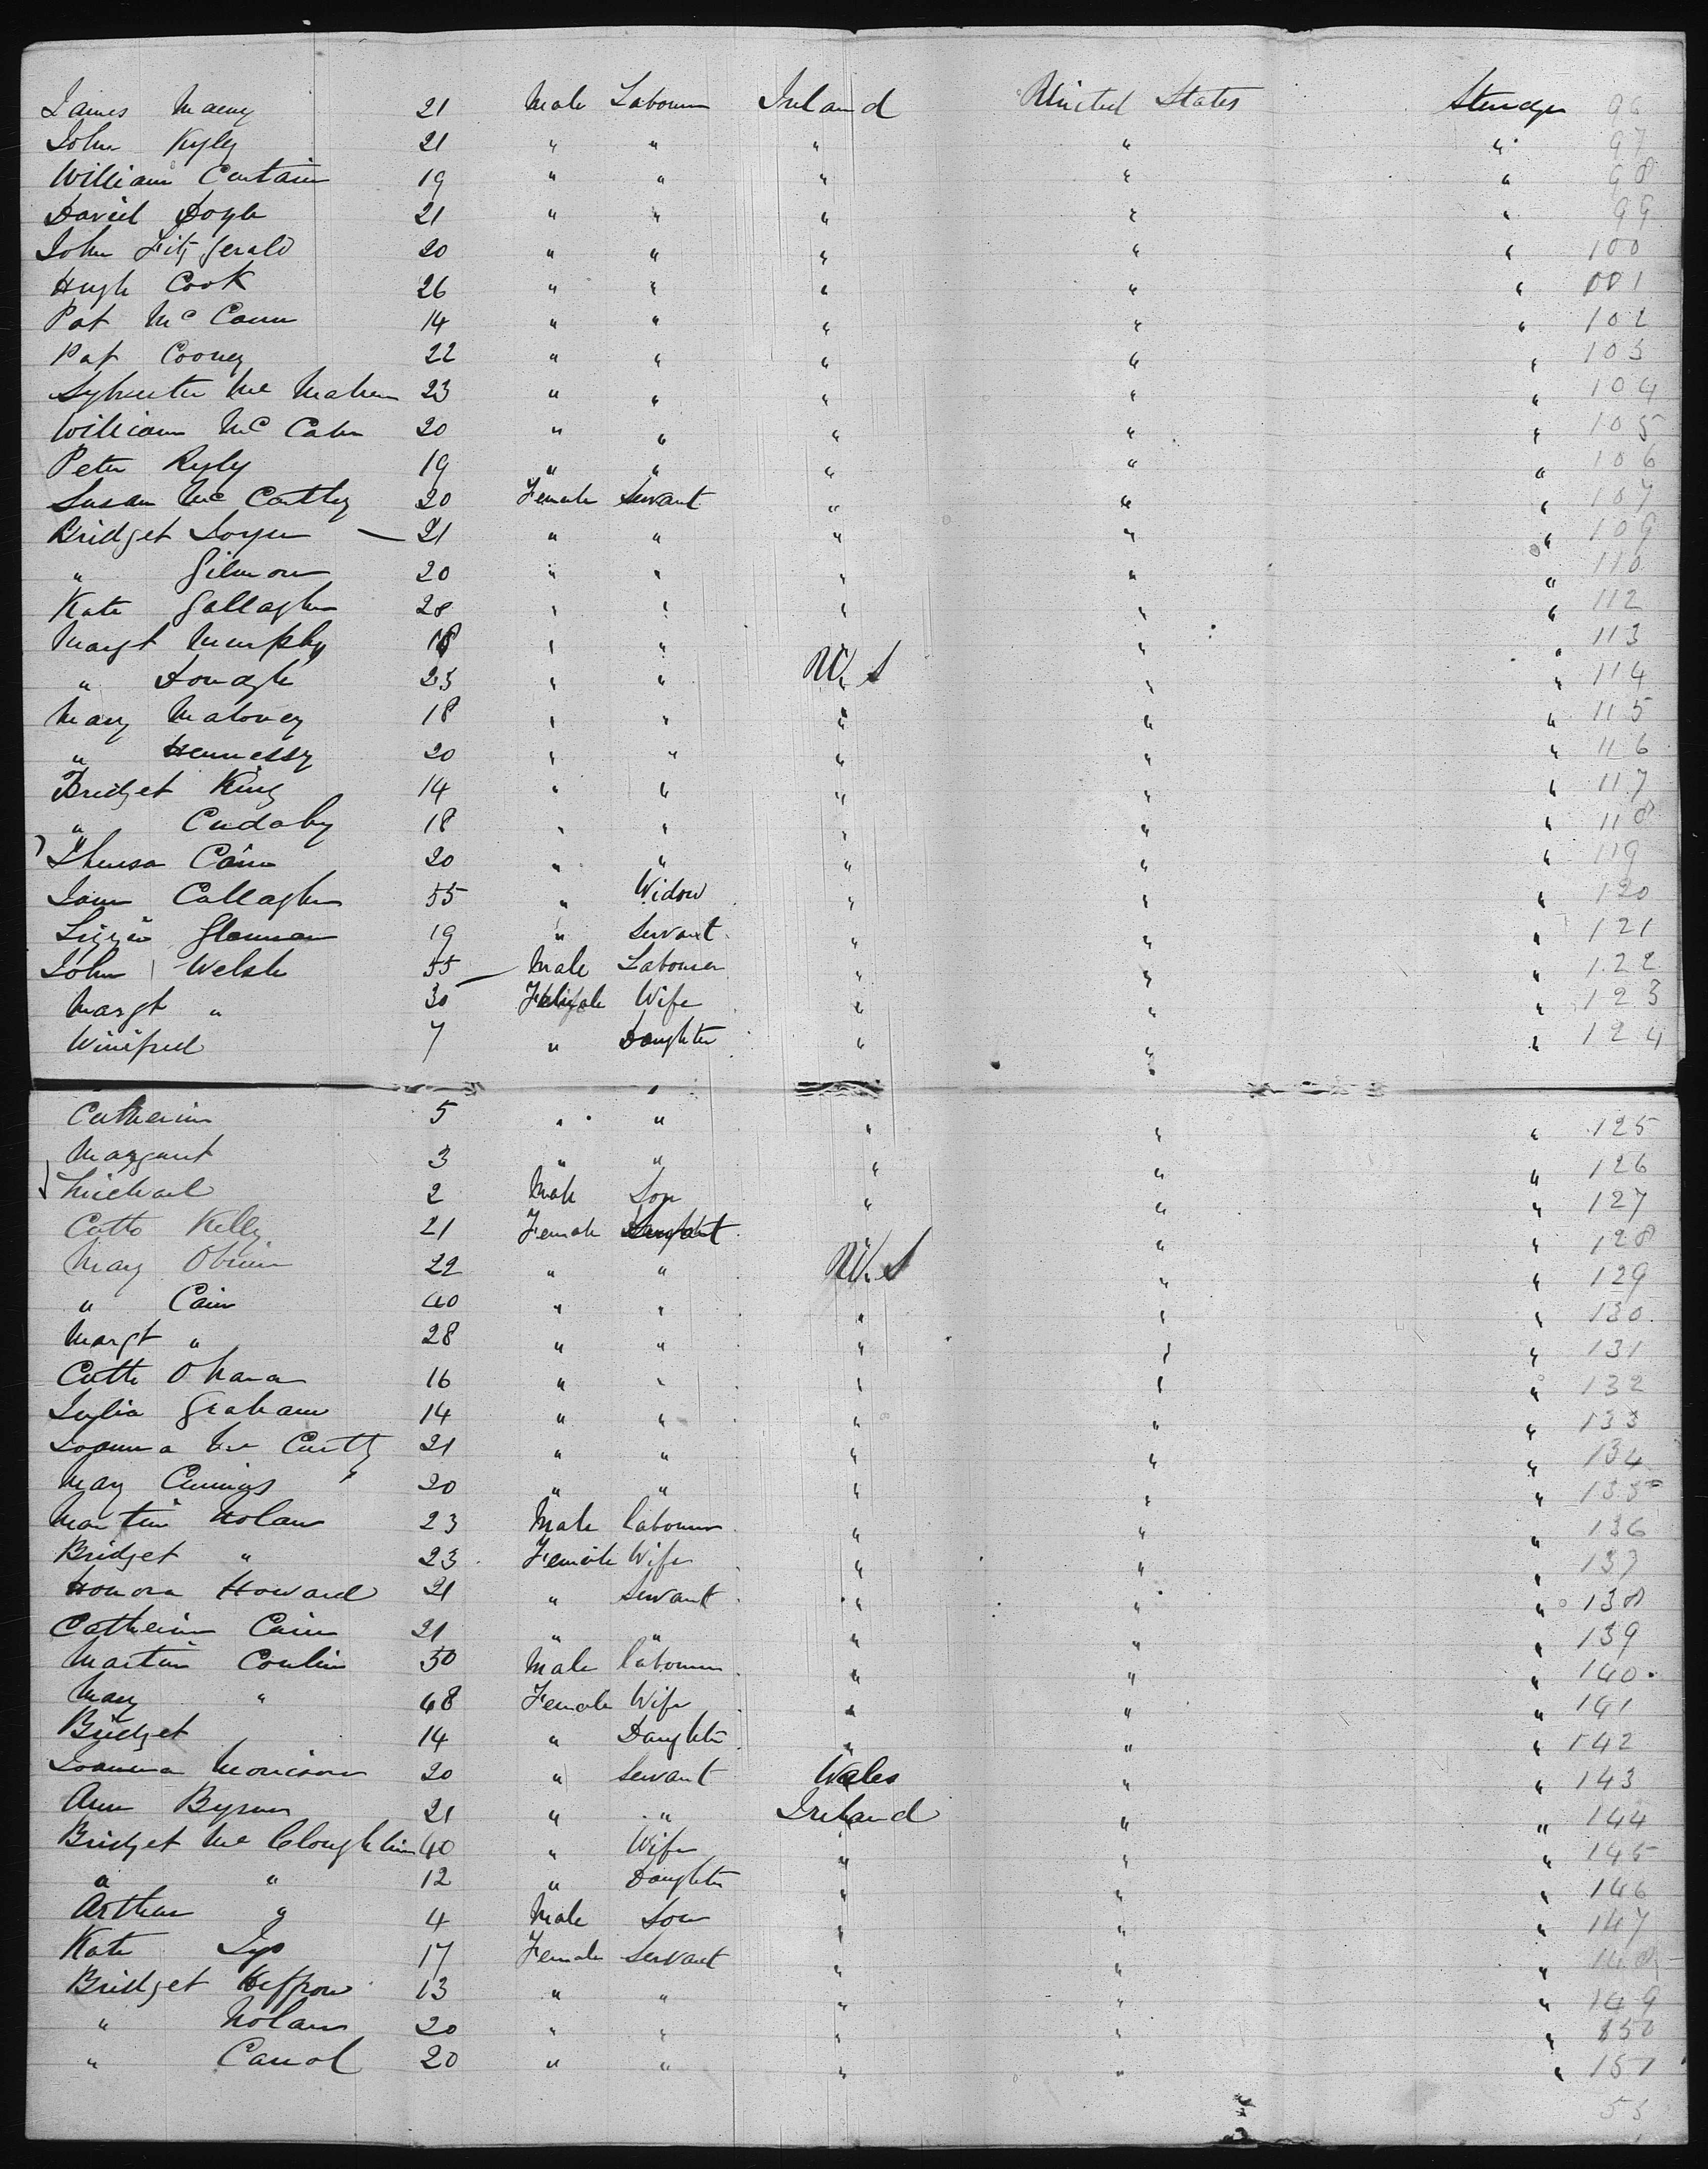 James Maeny 21 Male Labourer Ireland United States Steerage 96
John Kyley 21 " " " " " 97
William Curtain 19 " " " " " 98
David Doyle 21 " " " " " 99
John Fitzgerald 20 " " " " " 100
Hugh Cook 26 " " " " " 001
Pat McCann 14 " " " " " 102
Pat Cooney 22 " " " " " 103
Sylvester McMahon 23 " " " " " 104
William McCabe 20 " " " " " 105
Peter Ryly 19 " " " " " 106
Susan McCarthy 20 Female Servant " " " 107
Bridget 21 " " " " " 109
" Gilmore 20 " " " " " 110
Kate Gallagher 28 " " " " " 112
Margt Murphy 18 " " " " " 113
" Donagh 23 " " U.S " " 114
Mary Maloney 18 " " " " " 115
" Hennessy 20 " " " " " 116
Bridget King 14 " " " " " 117
" Cudahy 18 " " " " " 118
Theresa Cain 20 " " " " " 119
Jane Callaghan 55 " Widow " " " 120
Lizzie Glennan 19 " Servant " " " 121
John Welsh 55 Male Labourer " " " 122
Margt " 30 Female Wife " " " 123
Winifred 7 " Daughter " " " 124
Catherine 5 " " " " " 125
Margaret 3 " " " " " 126
Michael 2 Male Son " " " 127
Cath Kelly 21 Female Servant " " " 128
Mary Obrien 22 " " U.S " " 129
" Cain 40 " " " " " 130
Margt " 28 " " " " " 131
Cath Ohara 16 " " " " " 132
Julia Graham 14 " " " " " 133
Joanna McCarthy 21 " " " " " 134
Mary Cumings 20 " " " " " 135
Martin Nolan 23 Male labourer " " " 136
Bridget " 23 Female Wife " " " 137
Honora Howard 21 " Servant " " " 138
Catherine Cain 21 " " " " " 139
Martin Conlin 50 Male labourer " " " 140
Mary " 48 Female Wife " " " 141
Bridget 14 " Daughter " " " 142
Joanna Morison 20 " Servant Wales " " 143
Ann Byrnes 21 " " Ireland " " 144
Bridget McCloughlin 40 " Wife " " " 145
" " 12 " Daughter " " " 146
Arthur " 4 Male Son " " " 147
Kate 17 Female Servant " " " 148
Bridget Heffron 13 " " " " " 149
" Nolan 20 " " " " " 150
" Carrol 20 " " " " " 151
53